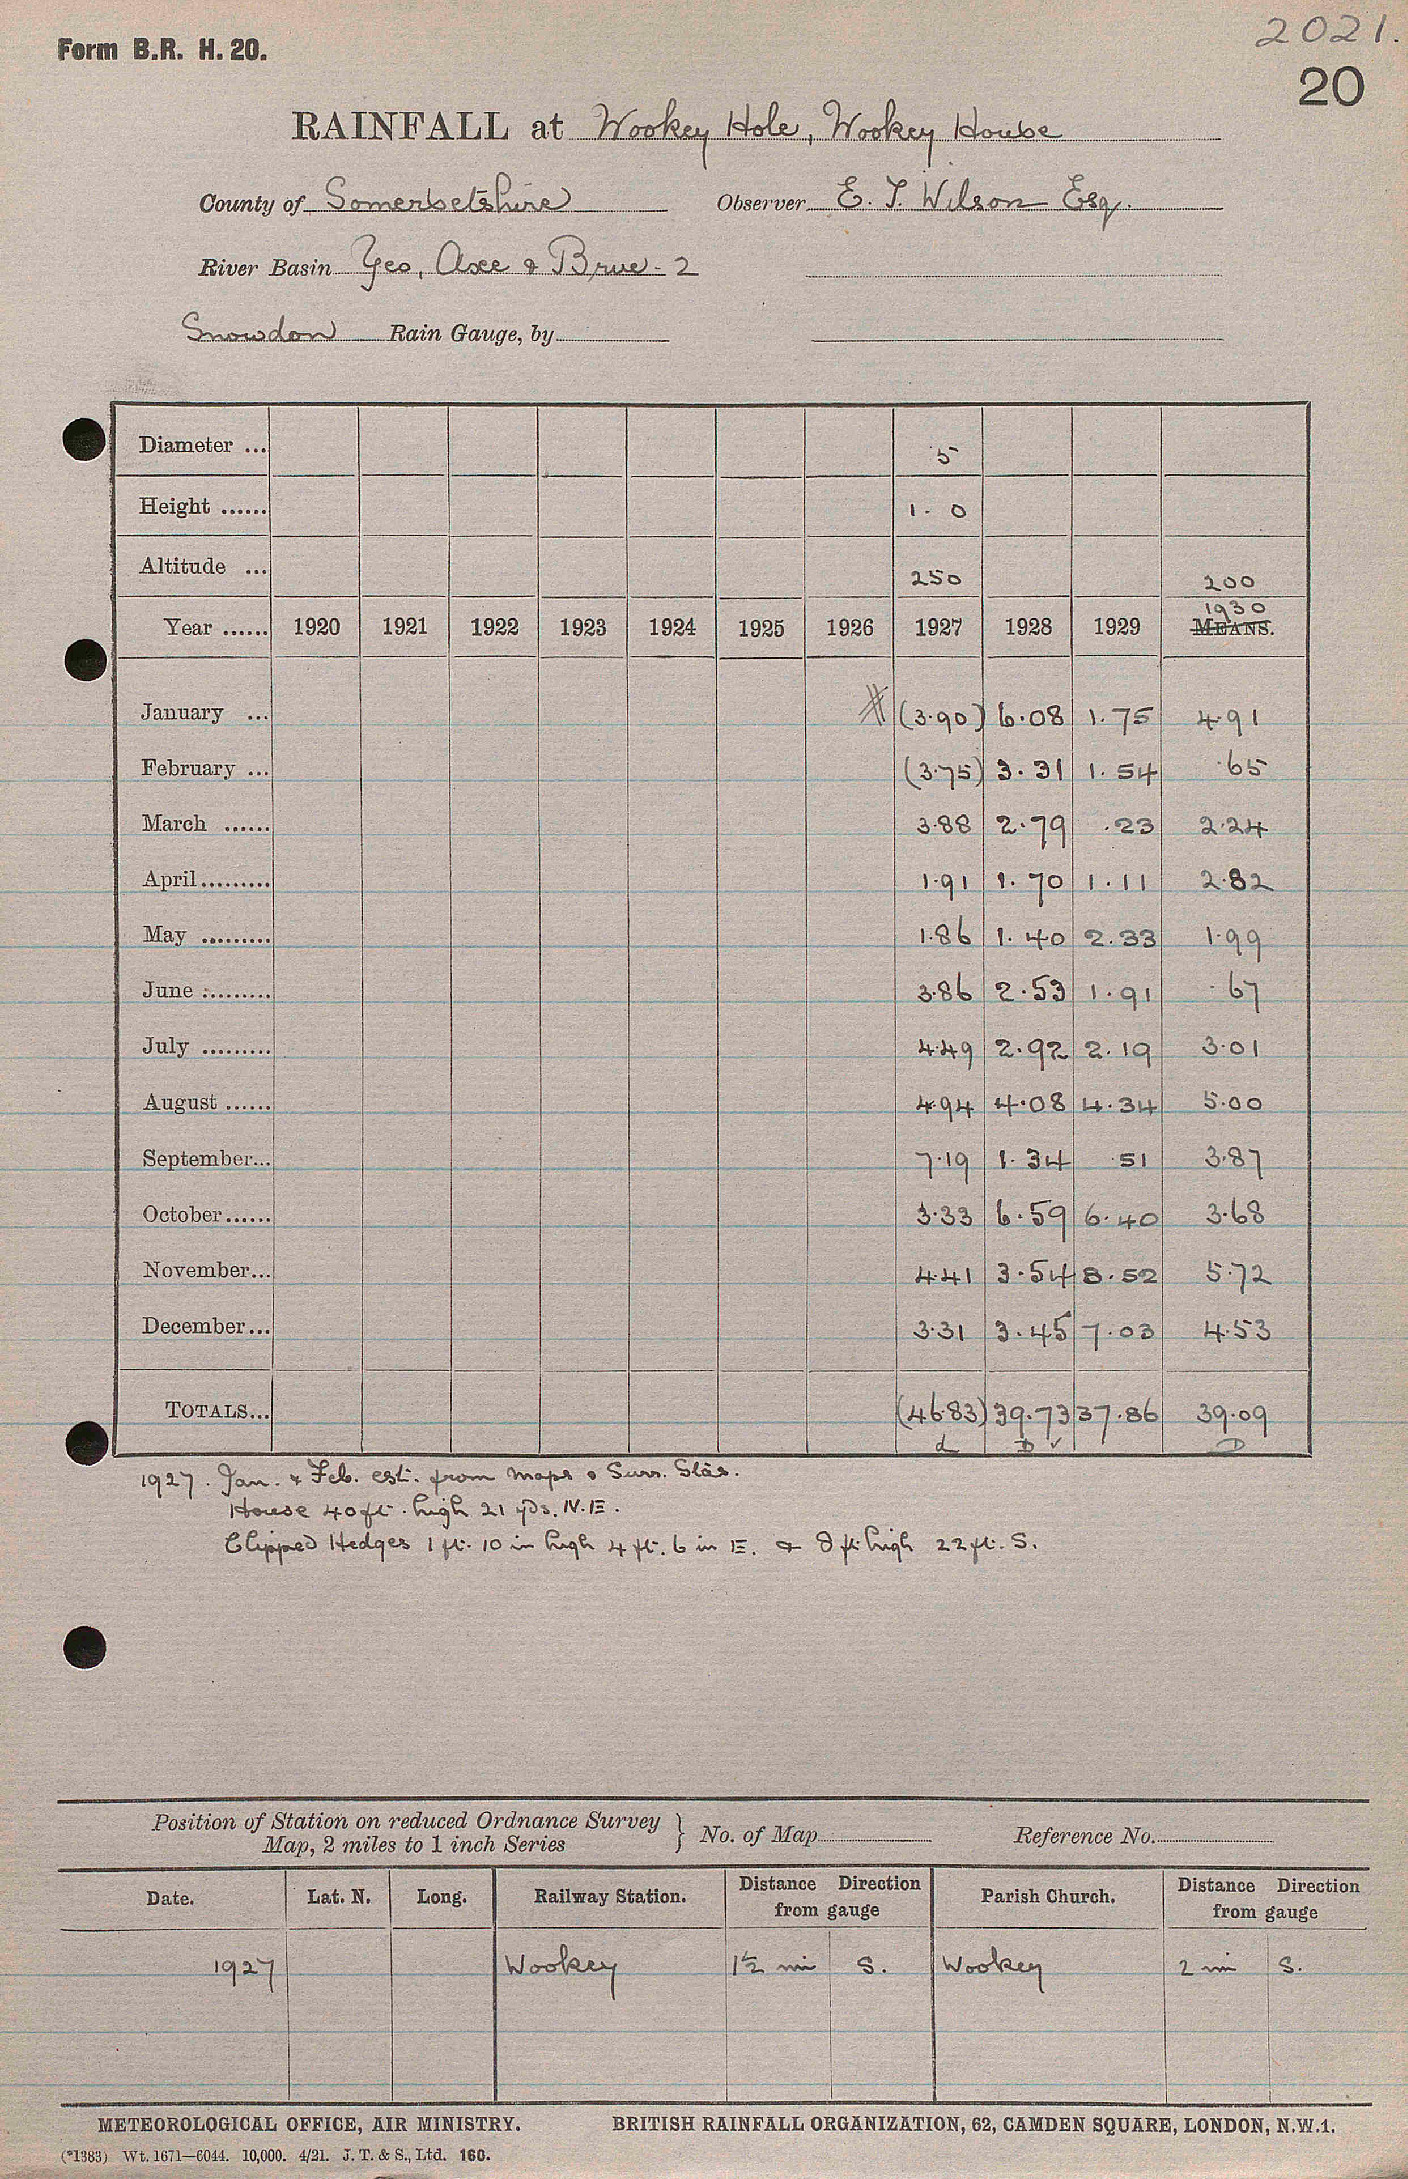 2021.
Form B.R. H. 20.
20
RAINFALL at Wookey Hole, Wookey House
County of Somersetshire Observer E. T. Wilson Esq.
River Basin Yeo, Axe & Brue - 2
Snowdon Rain Gauge, by
Diameter ... 5
Height ...... 1 . 0
Altitude ... 250 200
Year ...... 1920 1921 1922 1923 1924 1925 1926 1927 1928 1929 1930 MEANS.
January ... # (3.90) 6.08 1.75 4.91
February ... (3.75) 3.31 1.54 .65
March ...... 3.88 2.79 .23 2.24
April ......... 1.91 1.70 1.11 2.82
May ......... 1.86 1.40 2.33 1.99
June ......... 3.86 2.53 1.91 .67
July ......... 4.49 2.92 2.19 3.01
August ...... 4.94 4.08 4.34 5.00
September... 7.19 1.34 .51 3.87
October...... 3.33 6.59 6.40 3.68
November... 4.41 3.54 8.52 5.72
December... 3.31 3.45 7.03 4.53
TOTALS... (46.83) 39.73 37.86 39.09
d D ✓ D
1927. Jan. & Feb. est. from maps & Surr. Stas.
House 40 ft. high 21 yds. N.E.
Clipped Hedges 1 ft. 10 in high 4 ft. 6 in E. & 8 ft high 22 ft. S.
Position of Station on reduced Ordnance Survey
Map, 2 miles to 1 inch Series } No. of Map Reference No.
Date. Lat. N. Long. Railway Station. Distance Direction from gauge Parish Church. Distance Direction from gauge
1927 Wookey 1½ mi S. Wookey 2 mi S.
METEOROLOGICAL OFFICE, AIR MINISTRY. BRITISH RAINFALL ORGANIZATION, 62, CAMDEN SQUARE, LONDON, N.W.1.
(*1383) Wt. 1671—6044. 10,000. 4/21. J. T. & S., Ltd. 160.